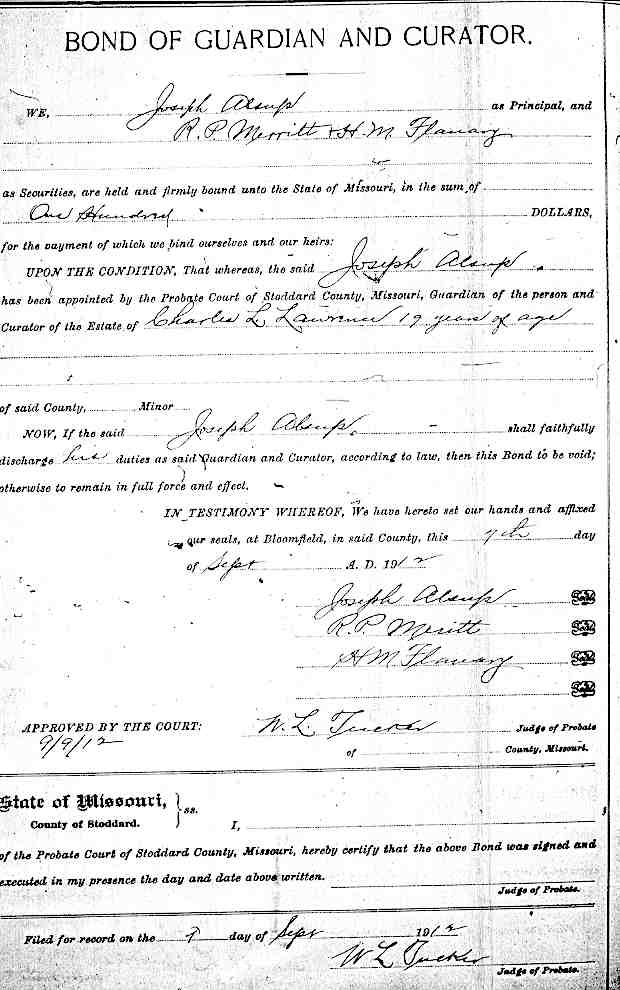 BOND OF GUARDIAN AND CURATOR.
WE, Joseph Alsup as Principal, and
R. P. Merritt & H. M. Flanary
as Securities, are held and firmly bound unto the State of Missouri, in the sum of
One Hundred DOLLARS,
for the payment of which we bind ourselves and our heirs:
UPON THE CONDITION, That whereas, the said Joseph Alsup.
has been appointed by the Probate Court of Stoddard County, Missouri, Guardian of the person and
Curator of the Estate of Charles L. Lawrence 19 years of age
of said County, Minor
NOW, If the said Joseph Alsup. shall faithfully
discharge his duties as said Guardian and Curator, according to law, then this Bond to be void;
otherwise to remain in full force and effect.
IN TESTIMONY WHEREOF, We have hereto set our hands and affixed
our seals, at Bloomfield, in said County, this 7th day
of Sept A. D. 1912
Joseph Alsup Seal
R. P. Meritt Seal
H M Flanary Seal
Seal
APPROVED BY THE COURT: W. L. Tucker Judge of Probate
9/9/12 of County, Missouri.
State of Missouri, } ss.
County of Stoddard.
I,
of the Probate Court of Stoddard County, Missouri, hereby certify that the above Bond was signed and
executed in my presence the day and date above written.
Judge of Probate.
Filed for record on the 9 day of Sept 1912
W L Tucker Judge of Probate.